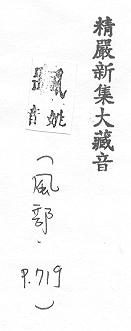 精嚴新集大藏音
颩
音
姚
(風部.
P.719)